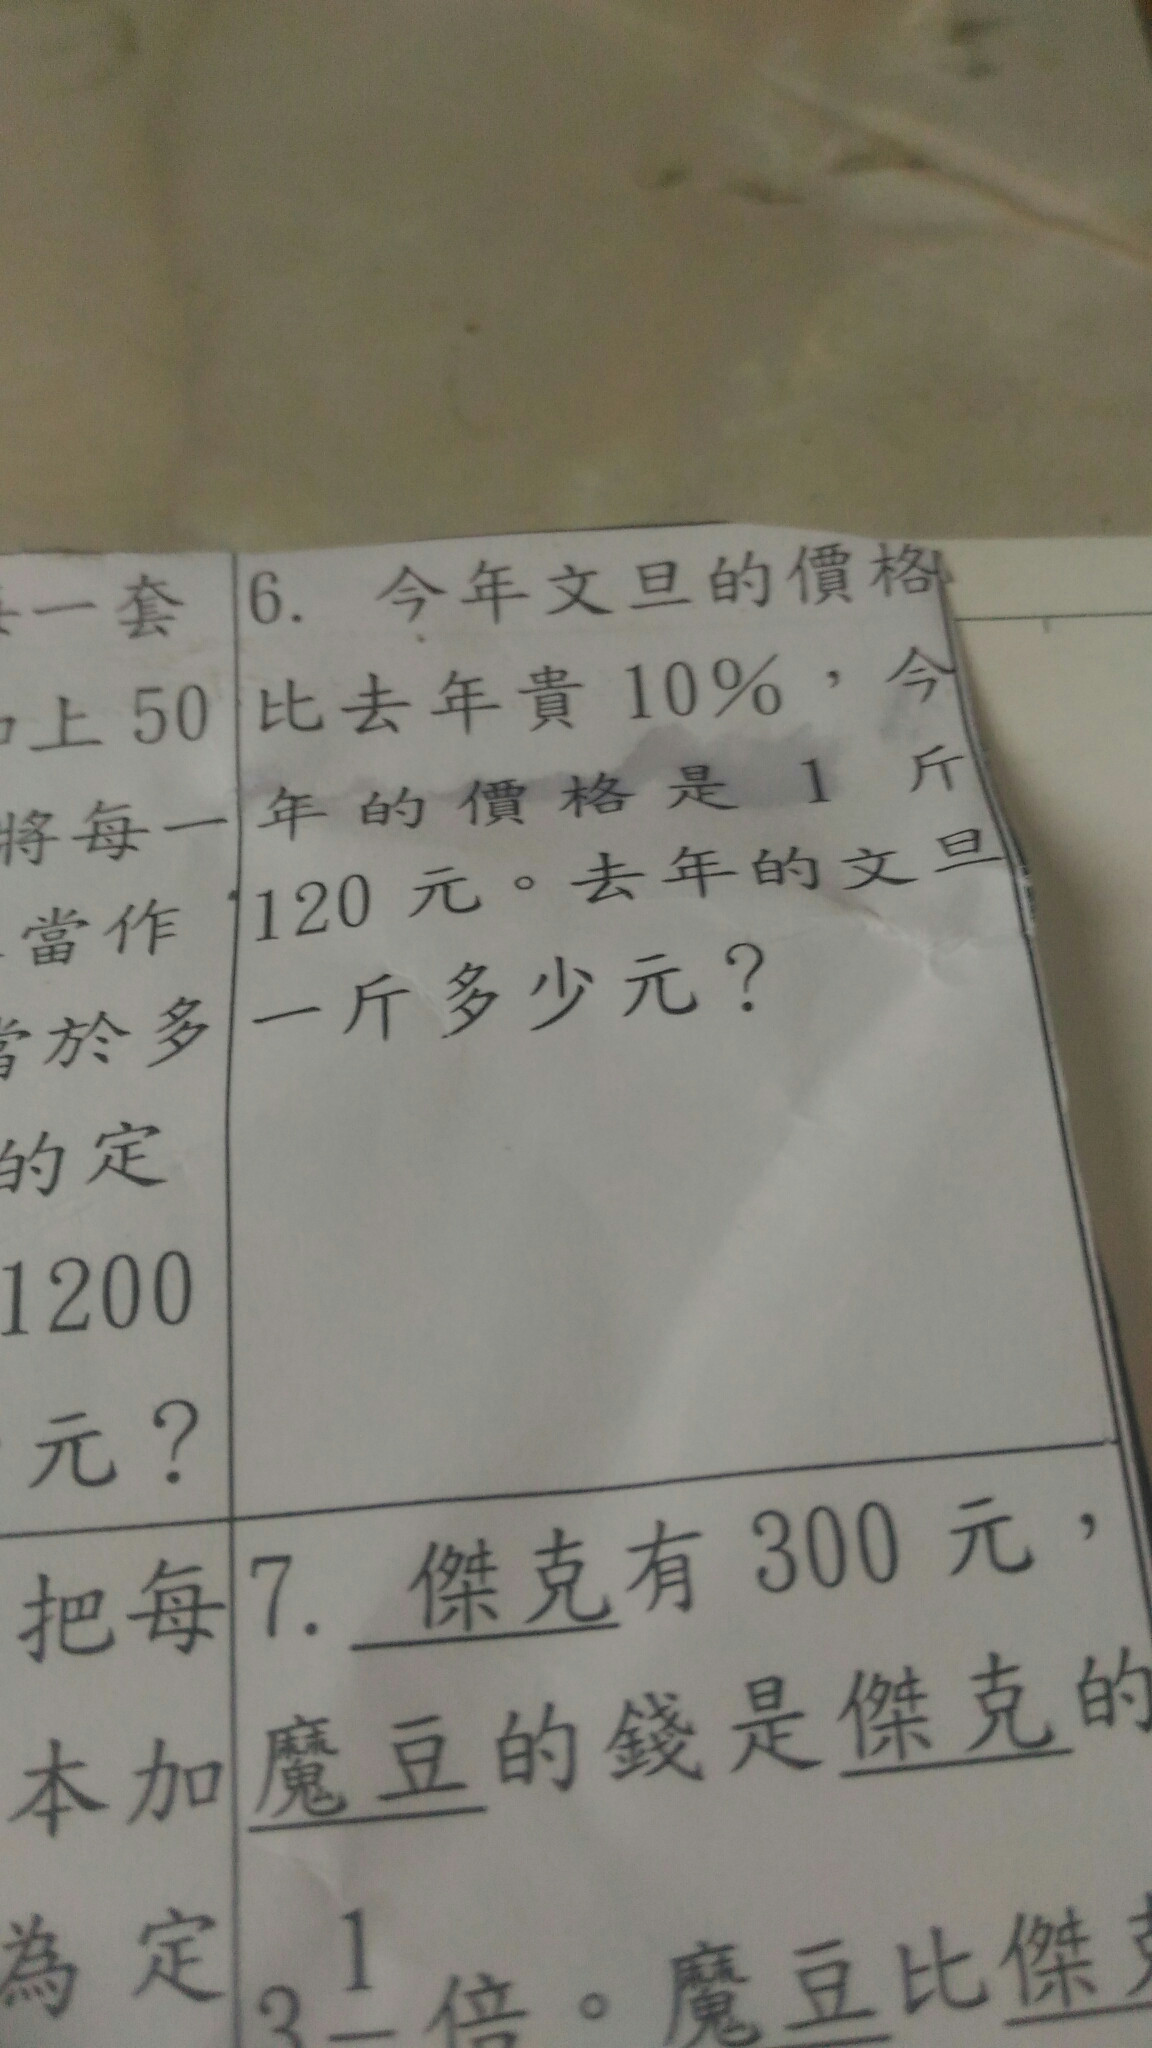 一套
上 50
將每一
當作
當於多
的定
1200
元？
把每
本加
為定
6. 今年文旦的價格
比去年貴 10%，今
年的價格是 1 斤
120 元。去年的文旦
一斤多少元？
7. 傑克有 300 元，
魔豆的錢是傑克的
3 1
倍。魔豆比傑克